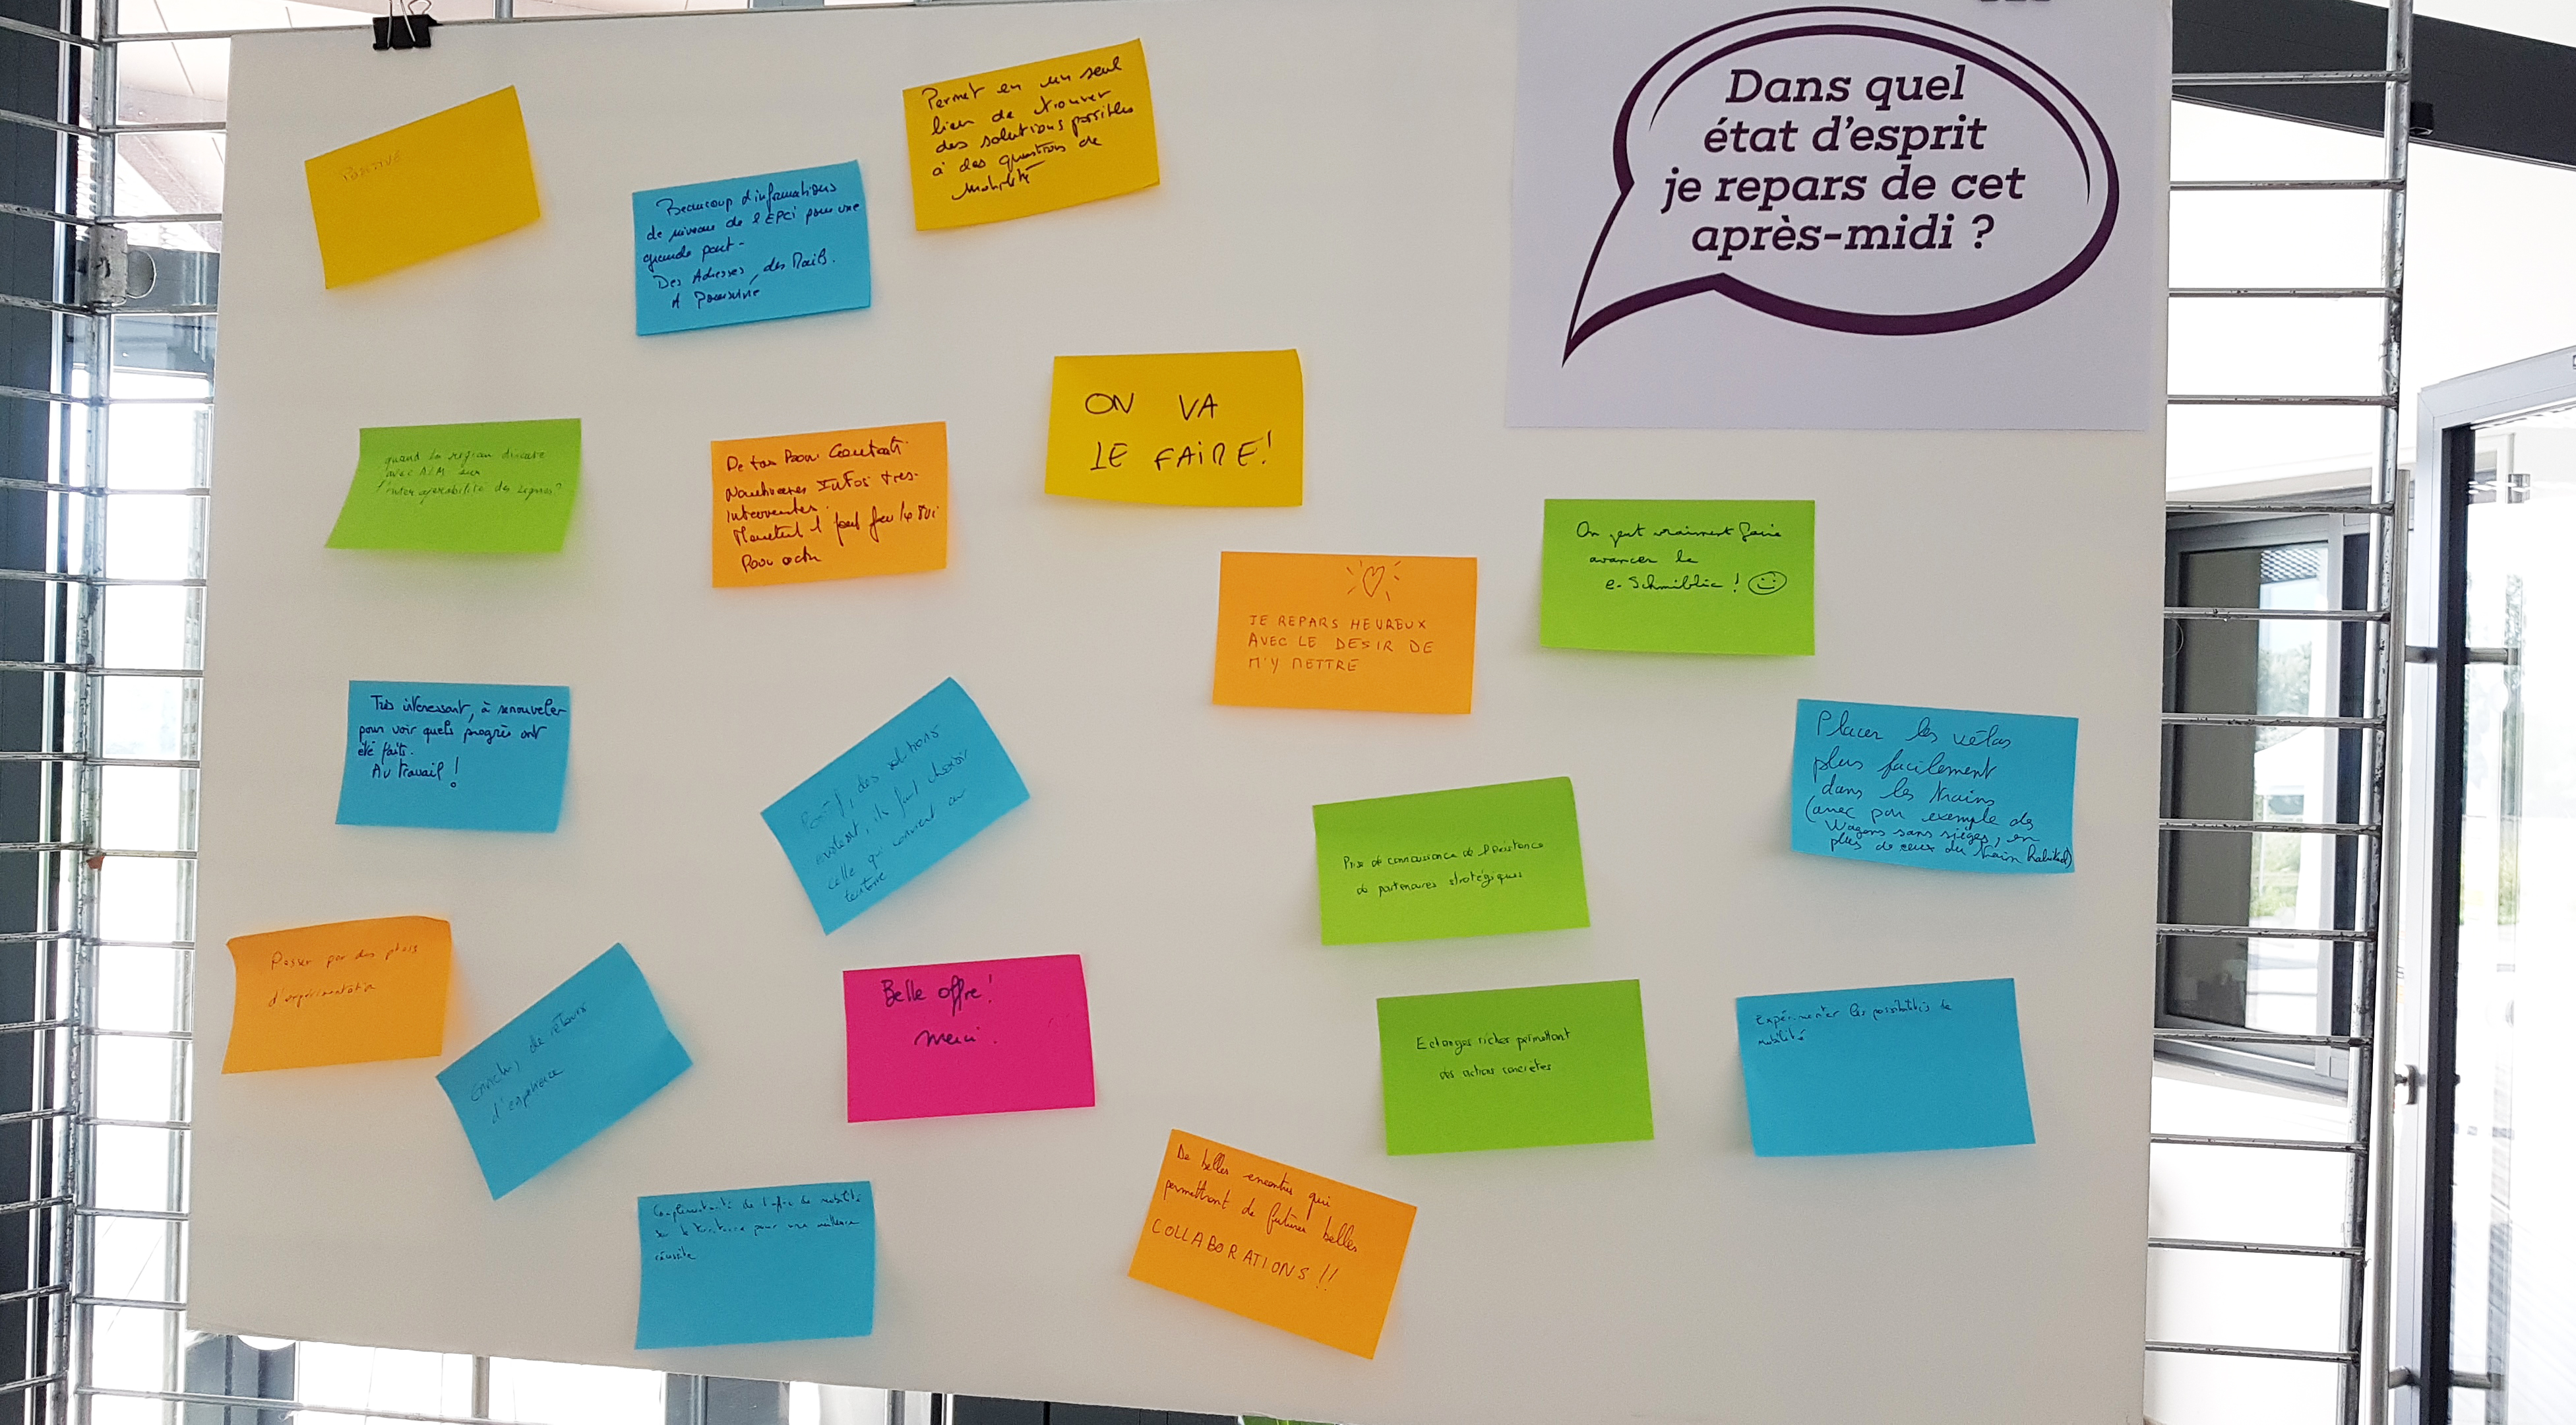 Dans quel
état d'esprit
je repars de cet
après-midi ?
POSITIVE
Permet en un seul
lieu de trouver
des solutions possibles
à des questions de
mobilité
Beaucoup d'informations
de niveau de l'EPCI pour une
grande part -
Des Adresses, des Mails.
A poursuivre
ON VA
LE FAIRE!
quand la région discute
avec ALM sur
l'inter opérabilité des lignes?
De tas Bons Contacts.
Nombreuses Infos très
Interessantes.
Pour
On peut vraiment faire
avancer le
e-Schmiblic !
JE REPARS HEUREUX
AVEC LE DESIR DE
M'Y METTRE
Très intéressant, à renouveler
pour voir quels progrès ont
été faits.
Au travail !
Positif, des solutions
existent, ils faut choisir
celle qui convient au
territoire
Placer les vélos
plus facilement
dans les trains
(avec par exemple des
Wagons sans sièges, en
plus de ceux du train habituel)
Prise de connaissance de l'existence
de partenaires stratégiques
Passer par des phases
d'expérimentation
Enrichi, de retours
d'expérience
Belle offre!
merci.
Echanges riches permettant
des actions concrètes
Expérimenter les possibilités de
mobilité
Complémentarité de l'offre de mobilité
sur le territoire pour une meilleure
réussite
De belles encontres qui
permettront de futures belles
COLLABORATIONS !!